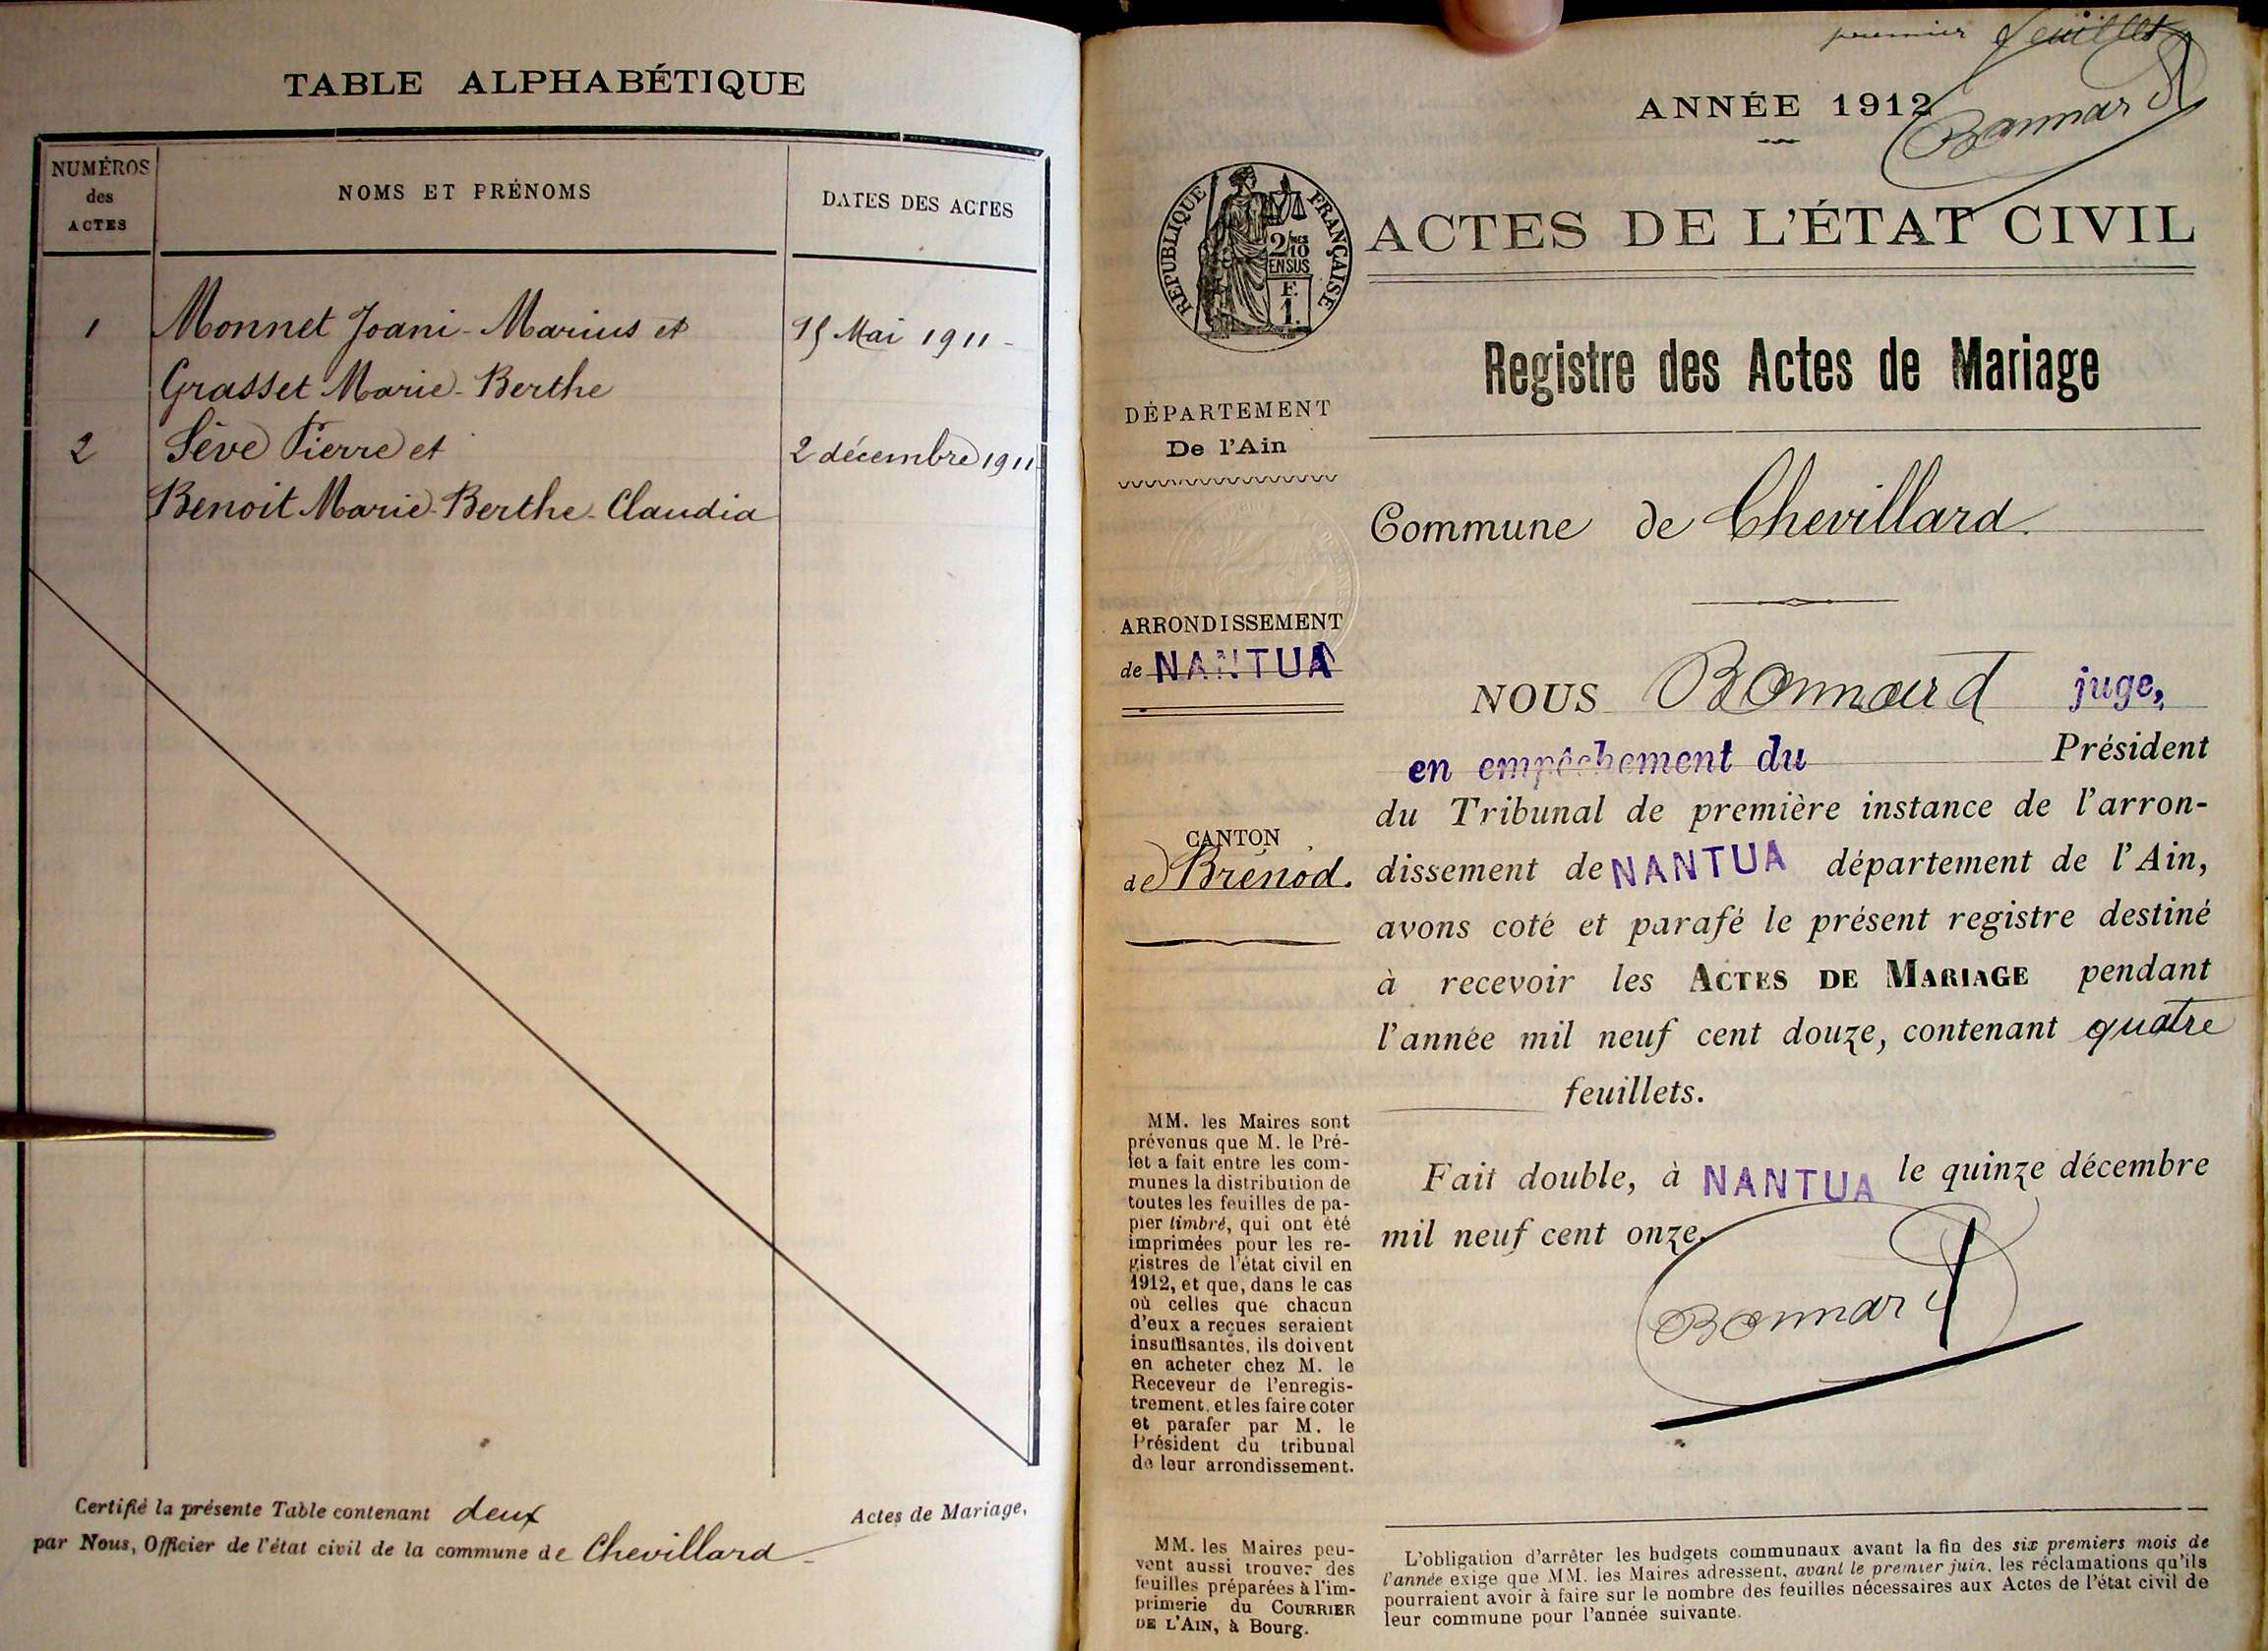 TABLE ALPHABÉTIQUE
NUMÉROS des ACTES
NOMS ET PRÉNOMS
DATES DES ACTES
1 Monnet Joani-Marius et 15 Mai 1911 -
Grasset Marie-Berthe
2 Sève Pierre et 2 décembre 1911
Benoit Marie-Berthe-Claudia
Certifié la présente Table contenant deux Actes de Mariage,
par Nous, Officier de l'état civil de la commune de Chevillard
premier feuillet
Bonnard
ANNÉE 1912
RÉPUBLIQUE FRANÇAISE
2/10
EN SUS
F.
1.
ACTES DE L'ÉTAT CIVIL
Registre des Actes de Mariage
DÉPARTEMENT
De l'Ain
Commune de Chevillard
ARRONDISSEMENT
de NANTUA
CANTON
de Brénod.
NOUS Bonnard juge,
en empêchement du Président
du Tribunal de première instance de l'arron-
dissement de NANTUA département de l'Ain,
avons coté et parafé le présent registre destiné
à recevoir les ACTES DE MARIAGE pendant
l'année mil neuf cent douze, contenant quatre
feuillets.
Fait double, à NANTUA le quinze décembre
mil neuf cent onze.
Bonnard
MM. les Maires sont
prévenus que M. le Pré-
fet a fait entre les com-
munes la distribution de
toutes les feuilles de pa-
pier timbré, qui ont été
imprimées pour les re-
gistres de l'état civil en
1912, et que, dans le cas
où celles que chacun
d'eux a reçues seraient
insuffisantes, ils doivent
en acheter chez M. le
Receveur de l'enregis-
trement, et les faire coter
et parafer par M. le
Président du tribunal
de leur arrondissement.
MM. les Maires peu-
vent aussi trouver des
feuilles préparées à l'im-
primerie du COURRIER
DE L'AIN, à Bourg.
L'obligation d'arrêter les budgets communaux avant la fin des six premiers mois de
l'année exige que MM. les Maires adressent, avant le premier juin, les réclamations qu'ils
pourraient avoir à faire sur le nombre des feuilles nécessaires aux Actes de l'état civil de
leur commune pour l'année suivante.